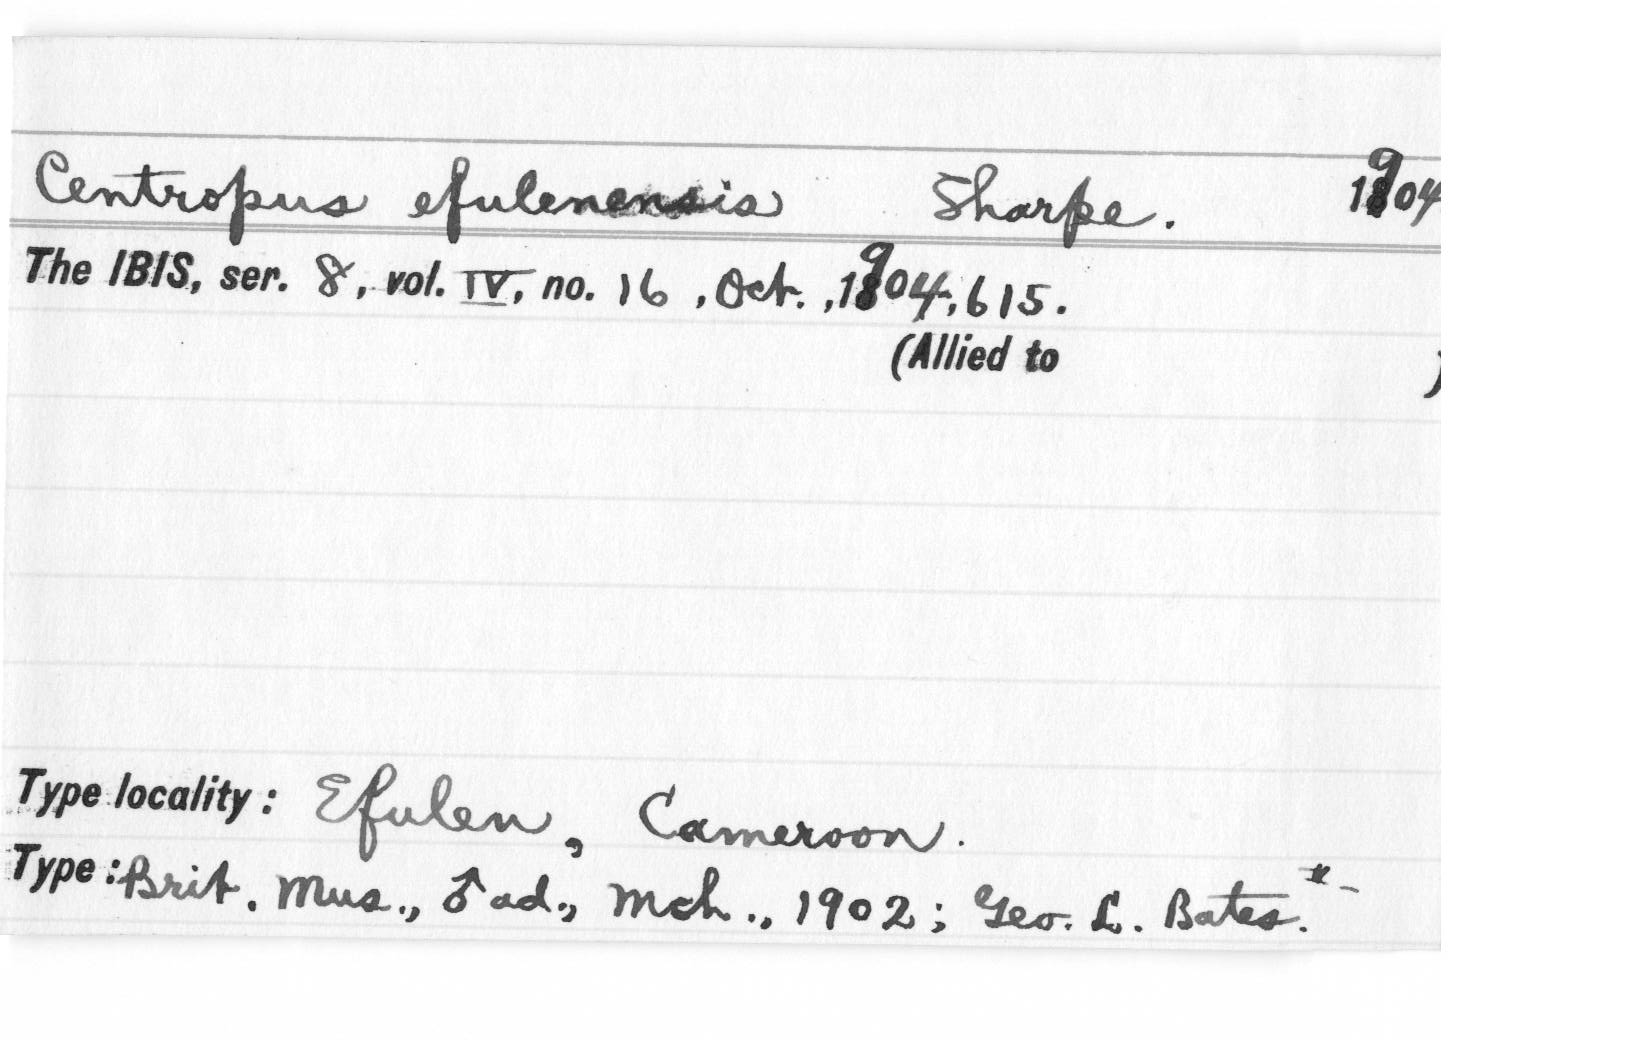 Centropus efulenensis Sharpe. 1904
The IBIS, ser. 8, vol. IV, no. 16, Oct., 1904, 615.
(Allied to )
Type locality: Efulen, Cameroon.
Type: Brit. Mus., ♂ ad., Mch., 1902; Geo. L. Bates. * -